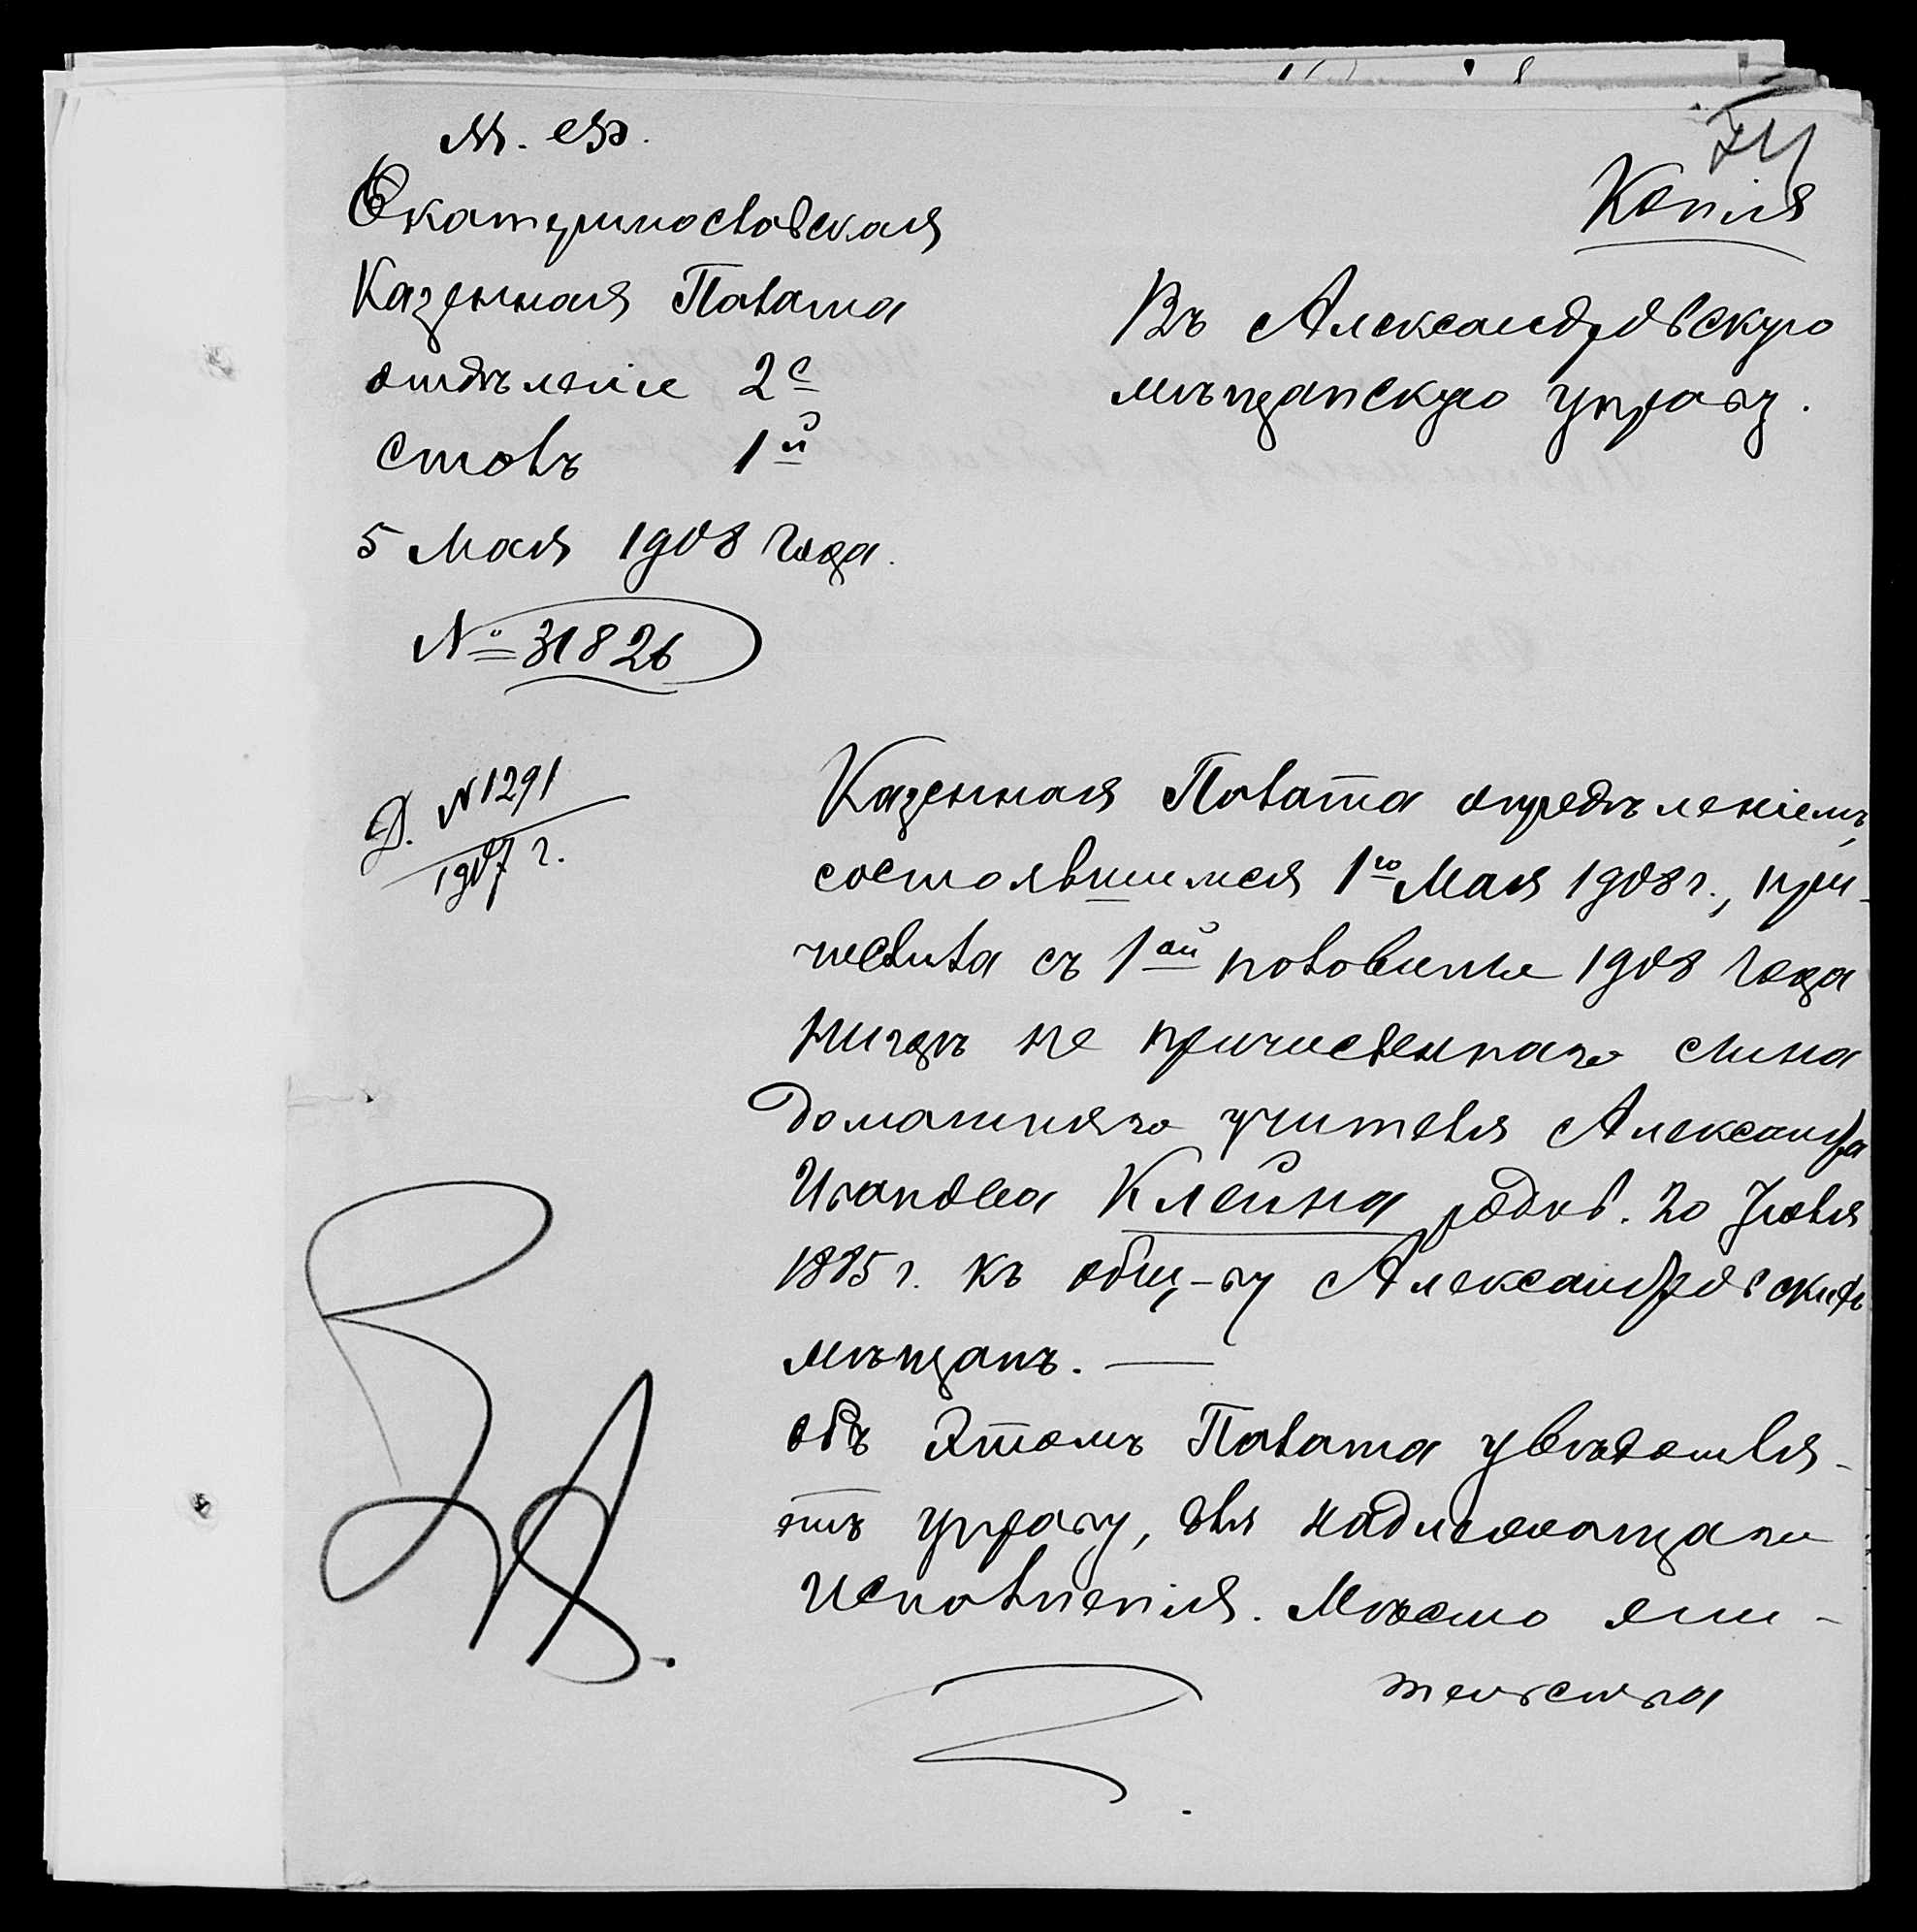 М. Ф.
Екатеринославская
Казенная Палата
отдѣленіе 2е
столъ 1й
5 мая 1908 года.
№ 31826
Д. № 1291
1907 г.
Копія
Въ Александровскую
мѣщанскую управу.
Казенная Палата опредѣленіемъ,
состоявшимся 1го Мая 1908 г., при-
числила съ 1ой половины 1908 года
нигдѣ не причисленнаго сына
домашняго учителя Александра
Иванова Клейна родив. 20 Іюля
1885 г. къ общ-ву Александровскихъ
мѣщанъ. —
Объ этомъ Палата увѣдомля-
етъ управу, для надлежащаго
исполненія. Мѣсто жи-
тельства